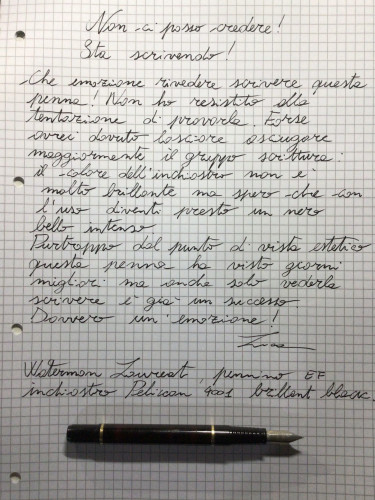 Non ci posso credere!
Sta scrivendo!
Che emozione rivedere scrivere questa
penna! Non ho resistito alla
tentazione di provarla. Forse
avrei dovuto lasciare asciugare
maggiormente il gruppo scrittura:
il colore dell'inchiostro non è
molto brillante ma spero che con
l'uso diventi presto un nero
bello intenso
Purtroppo dal punto di vista estetico
questa penna ha visto giorni
migliori ma anche solo vederla
scrivere è già un successo
Davvero un'emozione!
Waterman Laureat, pennino EF
inchiostro Pelican 4001 brillant black.